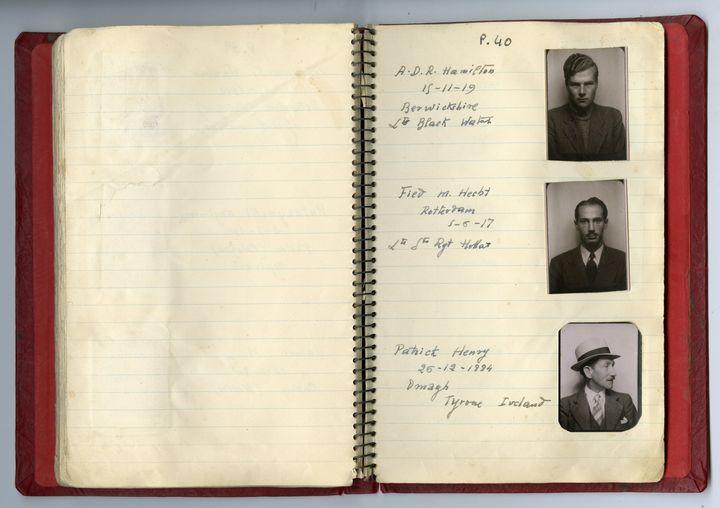 P. 40
A. D. R. Hamilton
15-11-19
Berwickshire
Lt Black Watch
Fred M. Hecht
Rotterdam
5-6-17
Lt Rgt
Patrick Henry
Omagh
Tyrone Ireland